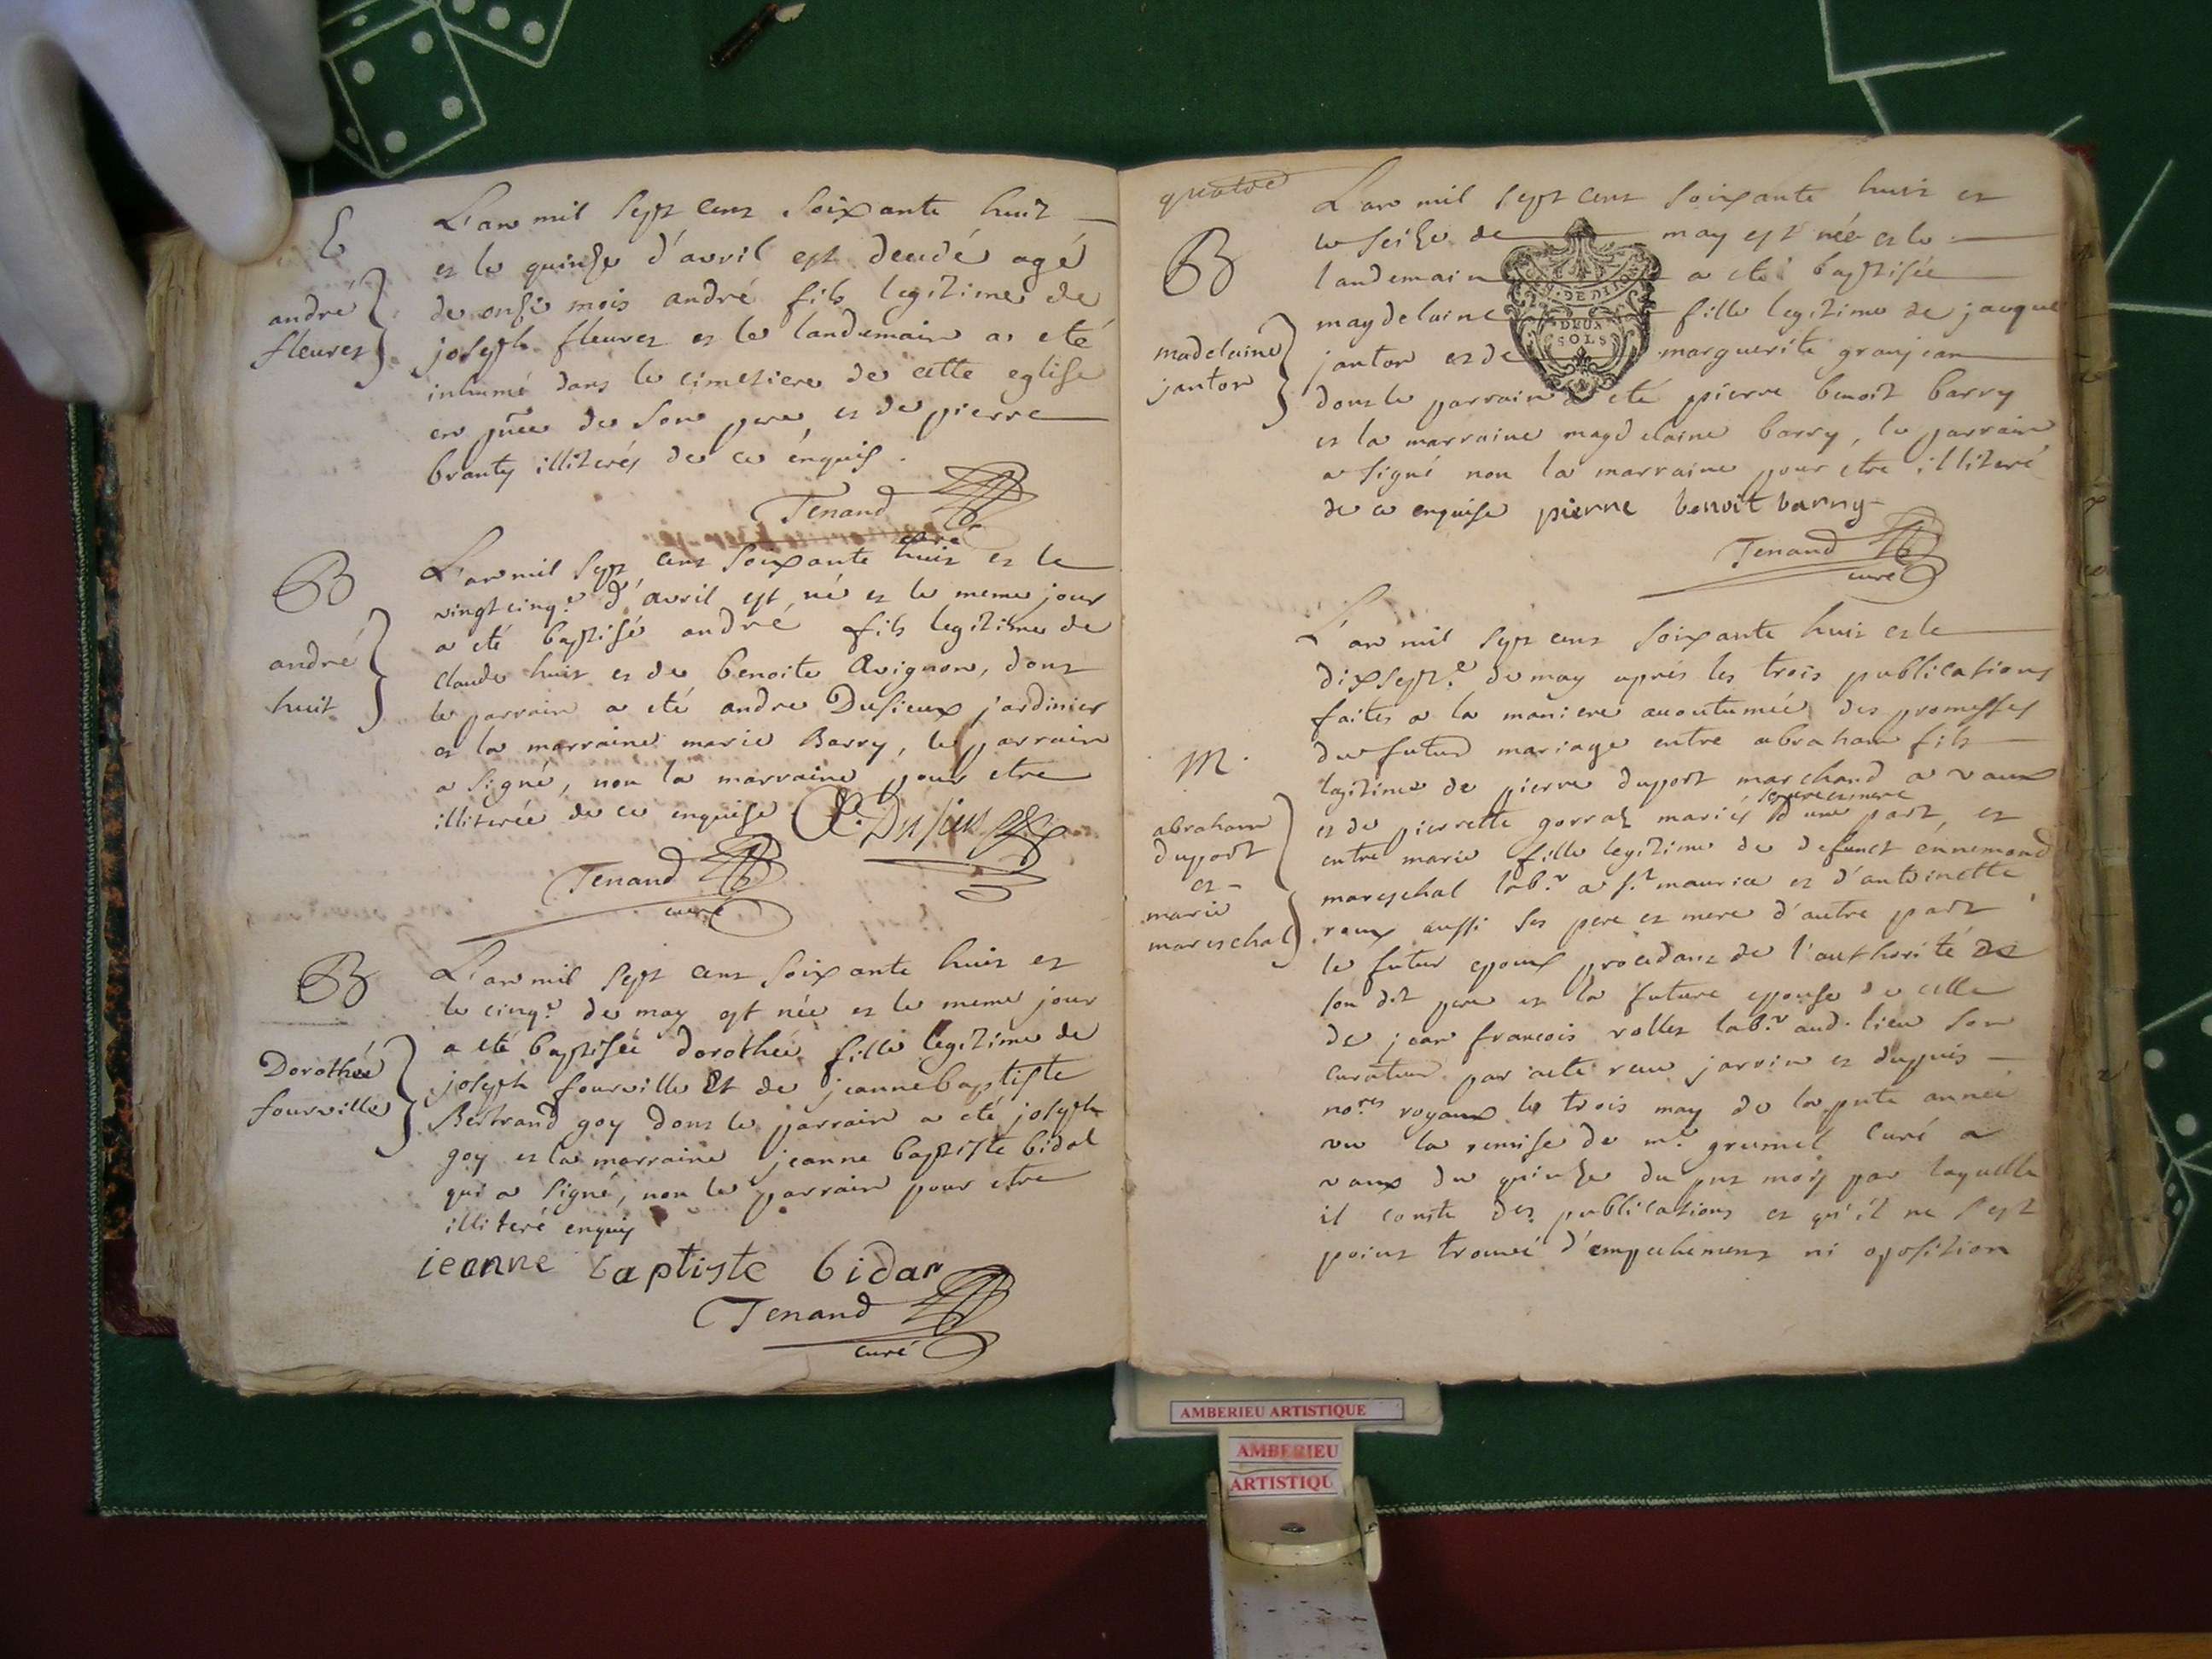 E
andre
fleuret
L'an mil sept cent soixante huit
et le quinze d'avril est decedé agé
de onze mois andré fils legitime de
joseph fleuret et le landemain a eté
inhumé dans le cimetiere de cette eglise
en pñce de son pere, et de pierre
branty illiterés de ce énquis.
Tenand
curé
B
andré
huit
L'an mil sept cent soixante huit et le
vingt cinq.e d'avril est né et le meme jour
a eté baptisé andré fils legitime de
claude huit et de benoite Avignon, dont
le parrain a eté andre Dusieux jardinier
et la marraine marie Barry, le parrain
a signé, non la marraine pour etre
illiterée de ce enquise
Tenand
curé
B
Dorothée
fourville
L'an mil sept cent soixante huit et
le cinq.e de may est née et le meme jour
a eté baptisée dorothée fille legitime de
joseph fourville Et de jeanne baptiste
Bertrand goy dont le parrain a eté joseph
goy et la marraine jeanne baptiste bidal
qui a signé, non le parrain pour etre
illiteré enquis
ieanne baptiste bidar
Tenand
curé
quatre
B
madelaine
janton
L'an mil sept cent soixante huit et
le seize de may est née et le
landemain a eté baptisée
magdelaine fille legitime de jacque
janton et de marguerite granjean
dont le parrain a eté pierre benoit barry
et la marraine magdelaine barry, le parrain
a signé non la marraine pour étre illiteré
de ce enquise pierre benoit barry
GEN. DE DIJON
DEUX
SOLS
Tenand
curé
M.
abraham
duport
et
marie
mareschal
L'an mil sept cent soixante huit et le
dix sept.e de may aprés les trois publications
faites a la maniere acoutumée des promesses
du futur mariage entre abraham fils
legitime de pierre duport marchand a vaux
et de pierrette gorraz mariés ses pere et mere d'une part, et
entre marie fille legitime de defunct ennemond
mareschal lab.r a s.t maurice et d'antoinette
roux aussi ses pere et mere d'autre part
le futur epoux procedant de l'authorité de
son dit pere et la future epouse de celle
de jean francois rollet lab.r aud. lieu son
curateur par acte receu jarrin et dupuis
no.res royaux le trois may de la pnte année
vu la remise de m.r grumet curé a
vaux du quinze du pnt mois par laquelle
il conste des publications et qu'il ne s'est
point trouvé d'empechement ni oposition
AMBERIEU ARTISTIQUE
AMBERIEU
ARTISTIQU